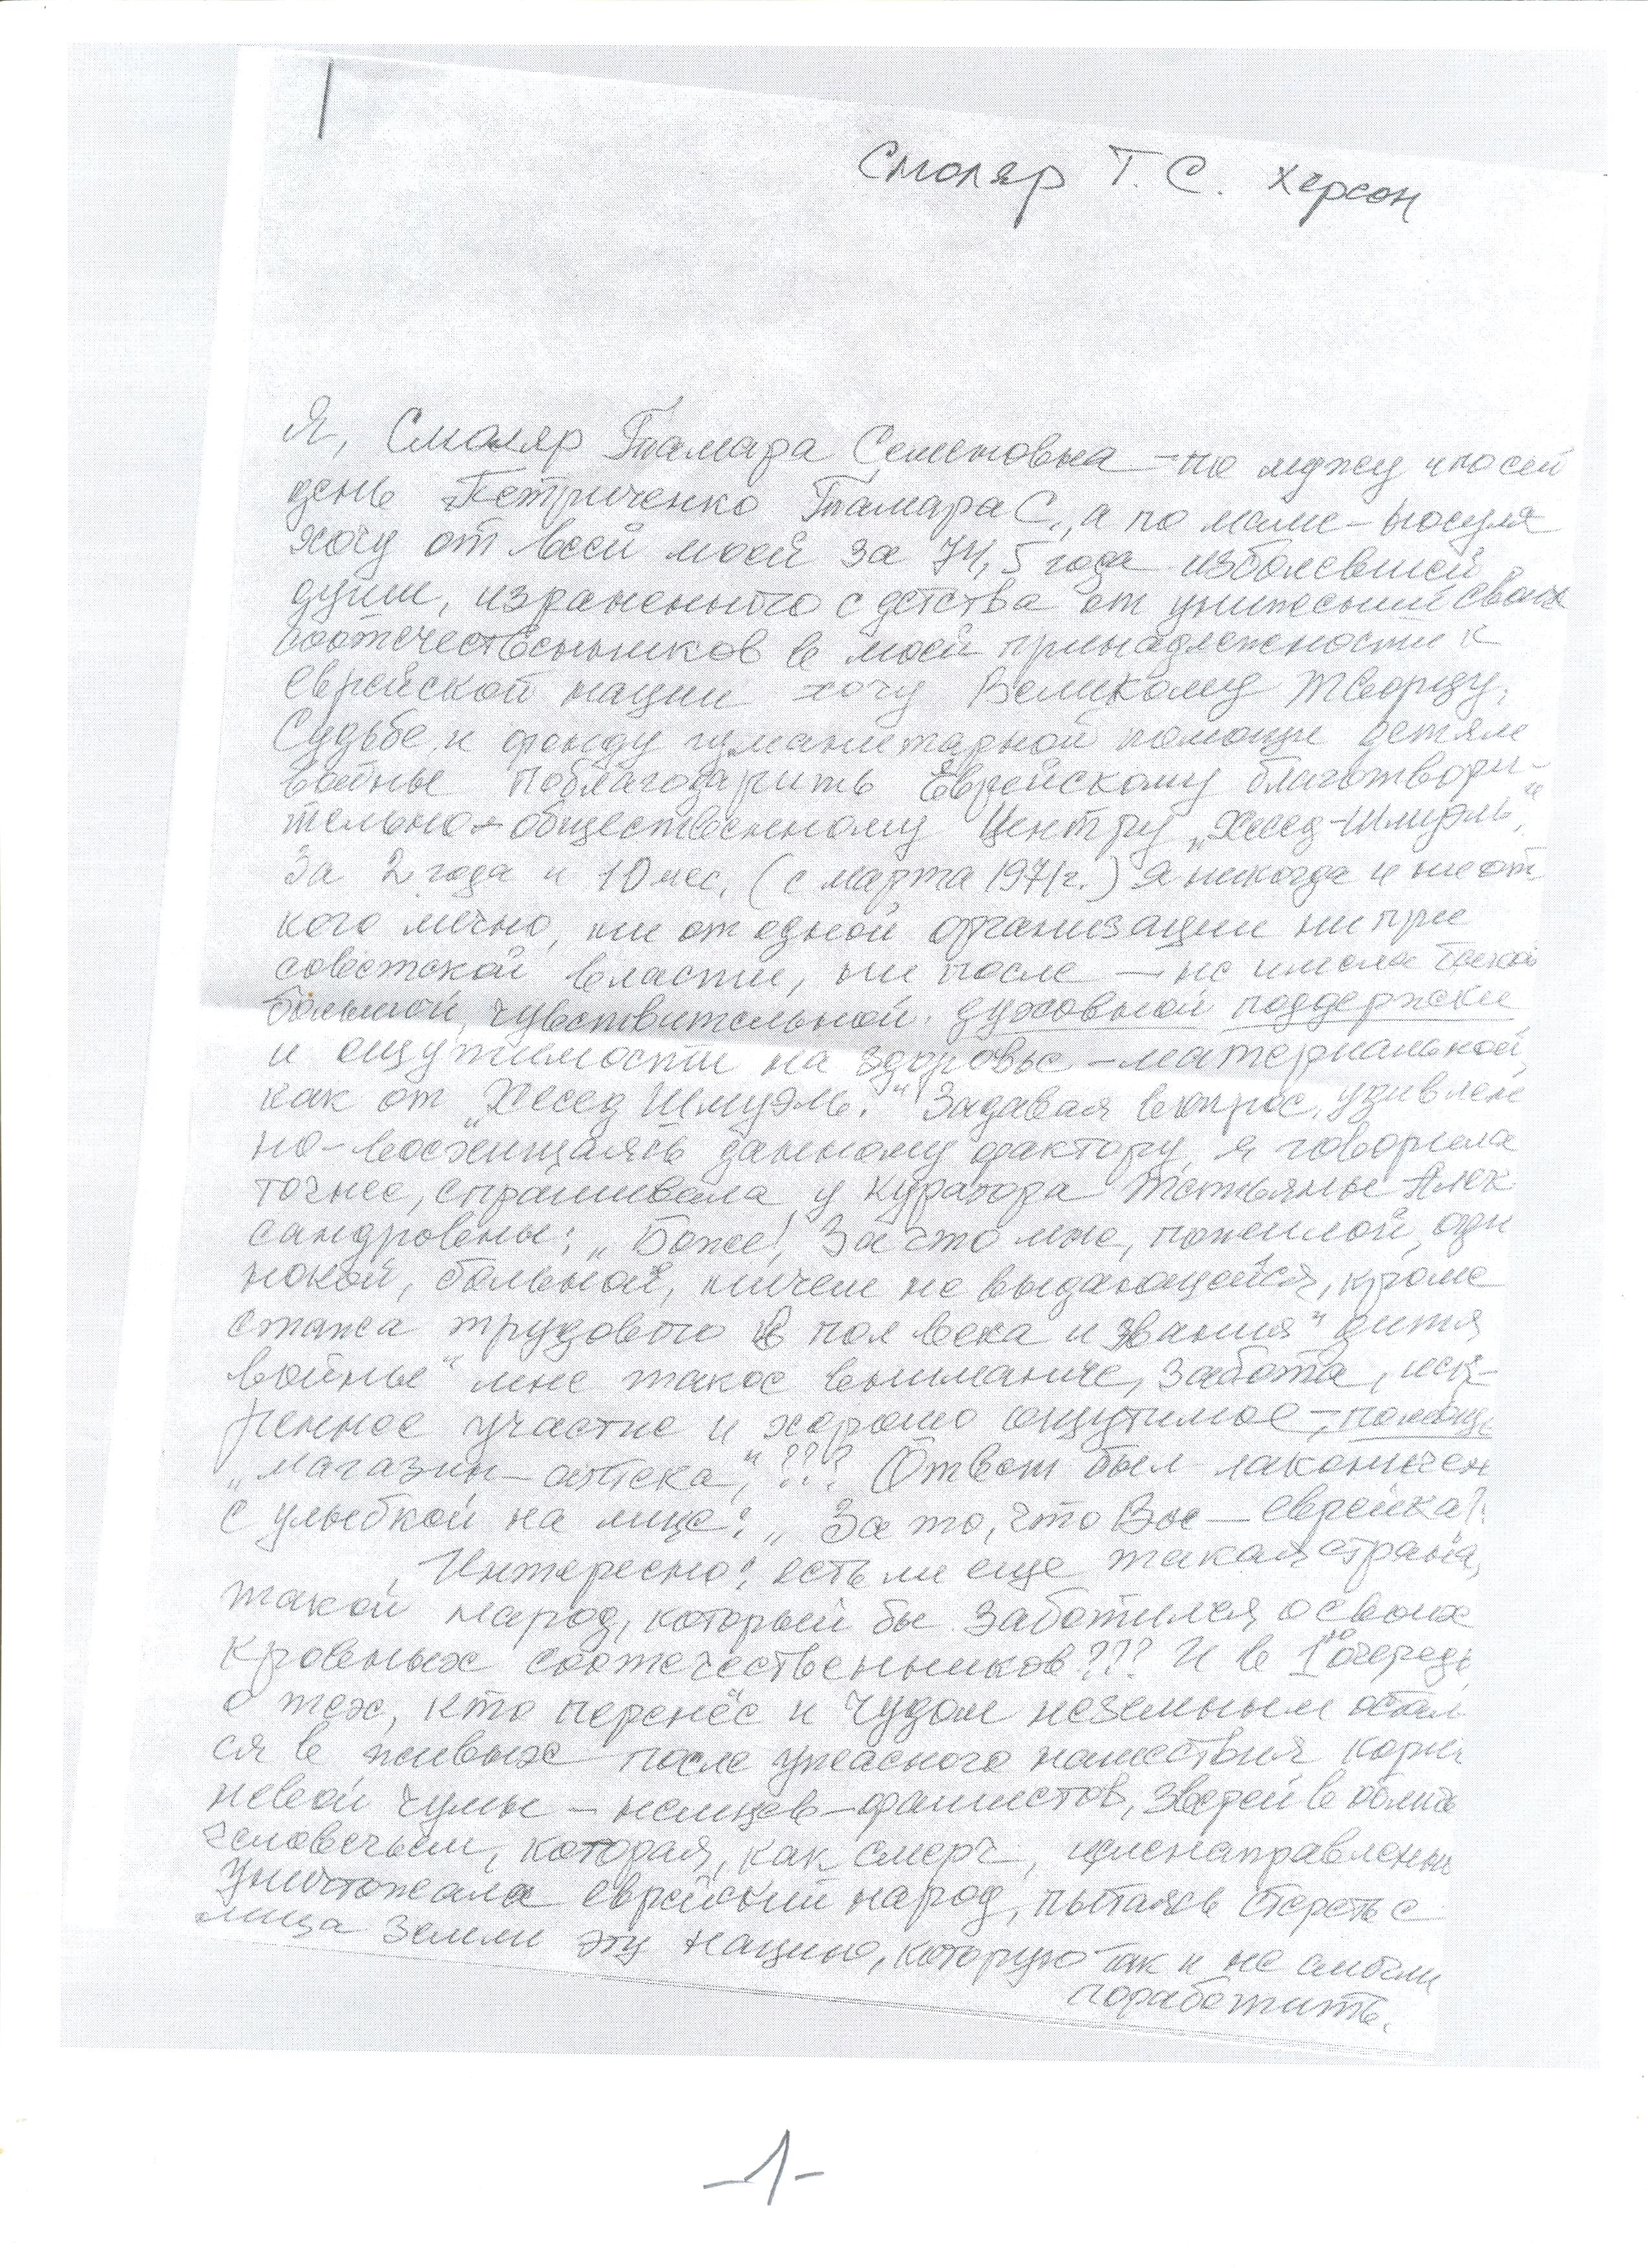 Смоляр Т. С. Херсон
Я, Смоляр Тамара Семеновна – по мужу и по сей
день Петриченко Тамара С., а по маме –
хочу от всей моей за 74,5 года изболевшей
души, израненного с детства от унижений своих
соотечественников в моей принадлежности к
еврейской нации хочу Великому Творцу,
Судьбе и фонду гуманитарной помощи детям
войны поблагодарить Еврейскому благотвори-
тельно-общественному Центру „Хесед-Шмуэль“,
За 2 года и 10 мес. (с марта 1971г.) я никогда и ни от
кого лично, ни от одной организации ни при
советской власти, ни после – не имела такой
большой, чувствительной, духовной поддержки
и ощутимости на здоровье – материальной,
как от „Хесед Шмуэль.“ Задавая вопрос, удивлен
но-восхищаясь данному фактору, я говорила
точнее, спрашивала у куратора Татьяны Алек
сандровны: „Боже! За что мне, пожилой, оди
нокой, больной, ничем не выдающейся, кроме
стажа трудового в пол века и звания „дитя
войны“ мне такое внимание, забота, иск-
реннее участие и хорошо ощутимое – помощь
„магазин – аптека,“??? Ответ был лаконичен
с улыбкой на лице: „За то, что Вы – еврейка?!
Интересно! есть ли еще такая страна,
такой народ, который бы заботился о своих
кровных соотечественников??? И в 1ую очередь,
о тех, кто перенёс и чудом неземным остал
ся в живых после ужасного нашествия корич
невой чумы – немцев – фашистов, зверей в облич
человечьем, которая, как смерч, целенаправленно
уничтожала еврейский народ, пытаясь стереть с
лица земли эту нацию, которую так и не смогли
поработить.
-1-